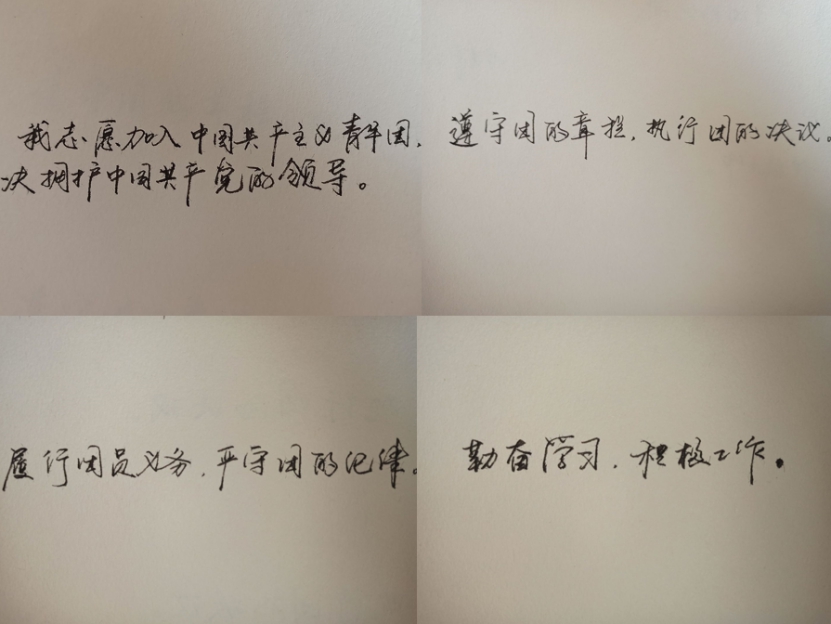 我志愿加入中国共产主义青年团,
决拥护中国共产党的领导。
遵守团的章程,执行团的决议。
履行团员义务,严守团的纪律。
勤奋学习,积极工作。